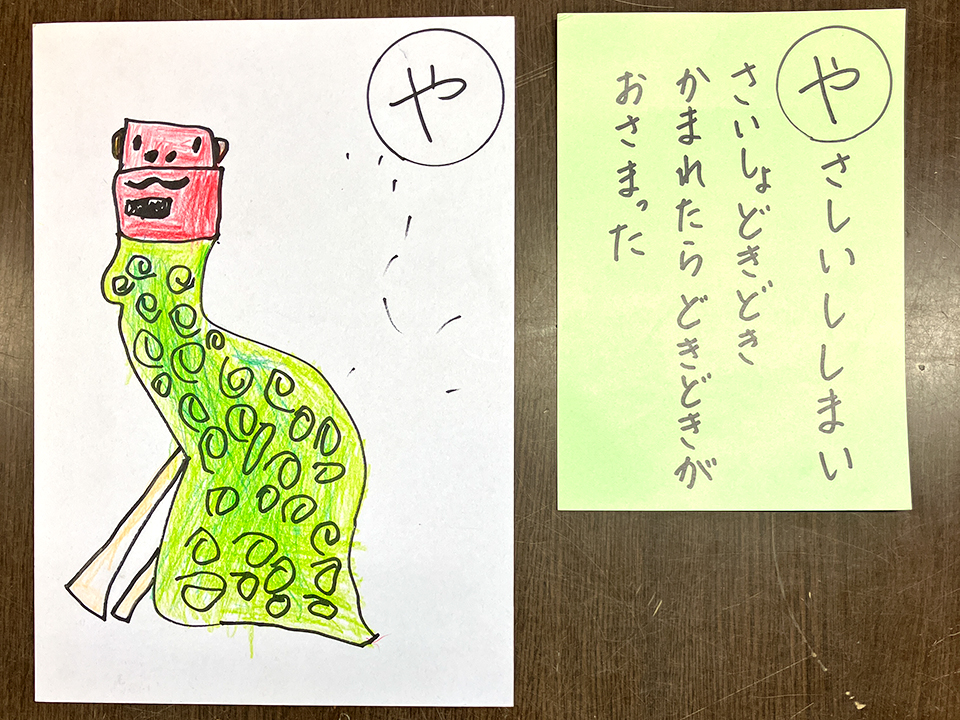 や
や
さしいししまい
さいしょどきどき
かまれたらどきどきが
おさまった